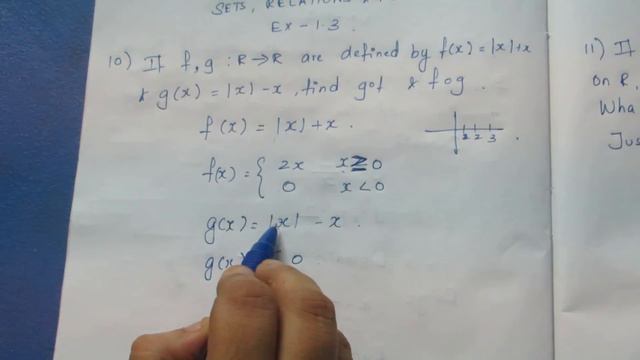 SETS, RELATIONS
EX-1.3.
10) If f,g : R→R are defined by f(x) = |x|+x
& g(x) = |x| – x, find gof & fog.
f(x) = |x| + x.
1 2 3
f(x) = { 2x x ≥ 0
0 x < 0
g(x) = |x| – x.
g(x) 0
11) If
on R,
Wha
Jus